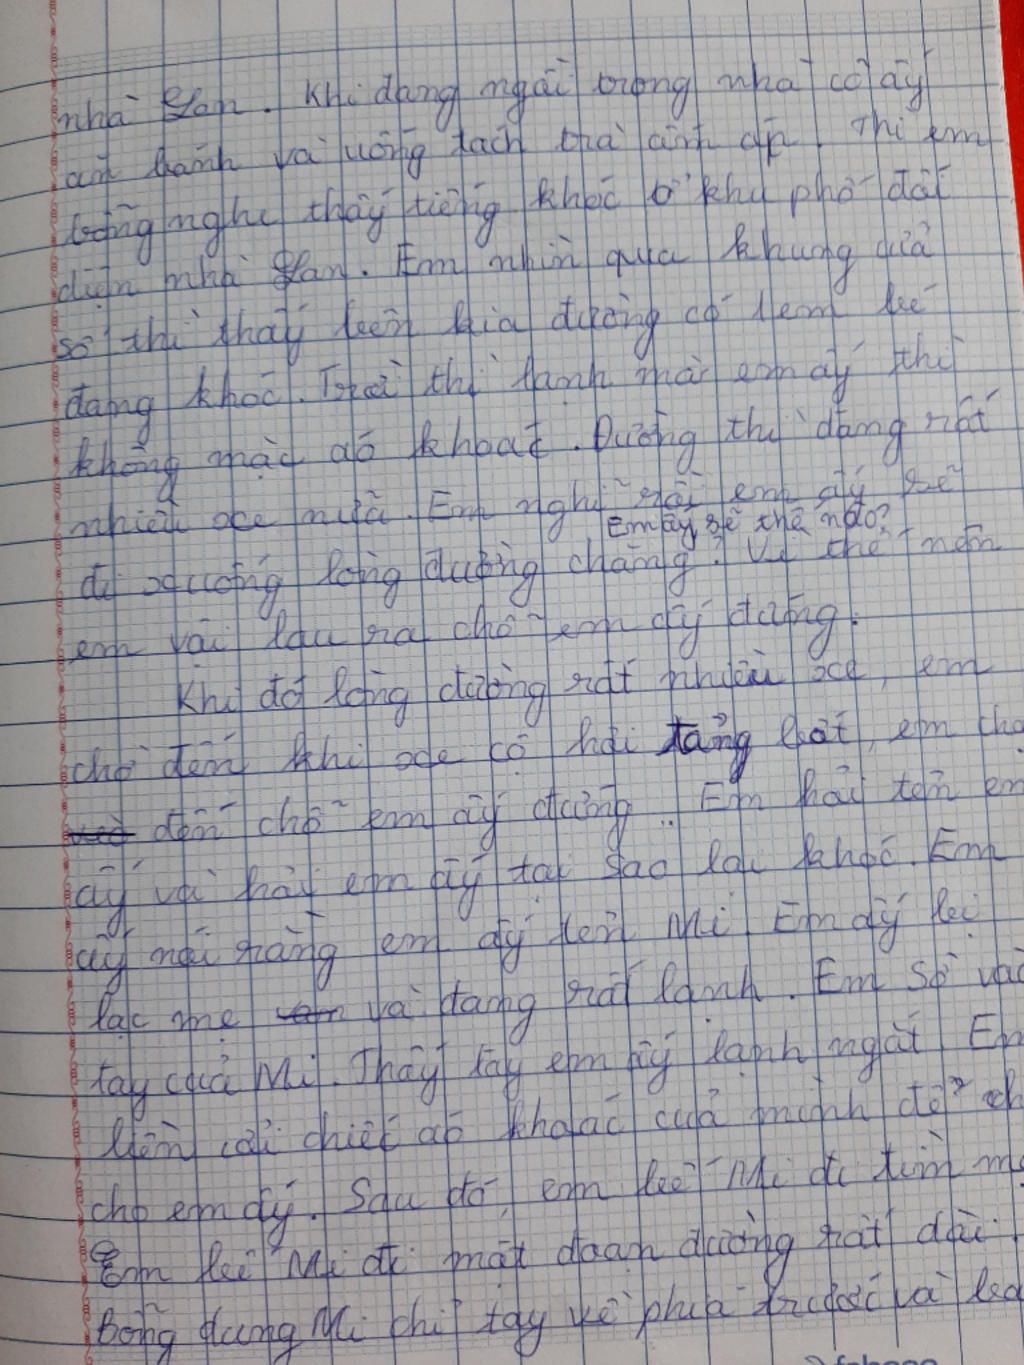 nhà Lan. Khi đang ngồi trong nhà cô ấy
ăn bánh và uống tách trà ấm áp. Thì em
bỗng nghe thấy tiếng khóc ở khu phố đối
diện nhà Lan. Em nhìn qua khung cửa
sổ thì thấy bên kia đường có 1 em bé
đang khóc. Trời thì lạnh mà em ấy thì
không mặc áo khoác. Đường thì đang rất
nhiều xe nữa. Em nghĩ rồi em ấy sẽ
Em ấy sẽ thế nào?
đi xuống lòng đường chăng? Vì thế nên
em vội lau ra chỗ em ấy đứng.
Khi đó lòng đường rất nhiều xe, em
chờ đến khi xe cộ hơi tảng bớt, em
đến chỗ em ấy đứng. Em hỏi tên em
ấy và hỏi em ấy tại sao lại khóc. Em
ấy nói rằng em ấy tên Mi. Em ấy bị
lạc mẹ và đang rất lạnh. Em sờ vào
tay của Mi. Thấy tay em ấy lạnh ngắt. Em
liền cởi chiếc áo khoác của mình để
cho em ấy. Sau đó, em bế Mi đi tìm mẹ
Em bế Mi đi một đoạn đường rất dài.
Bỗng dưng Mi chỉ tay về phía trước và